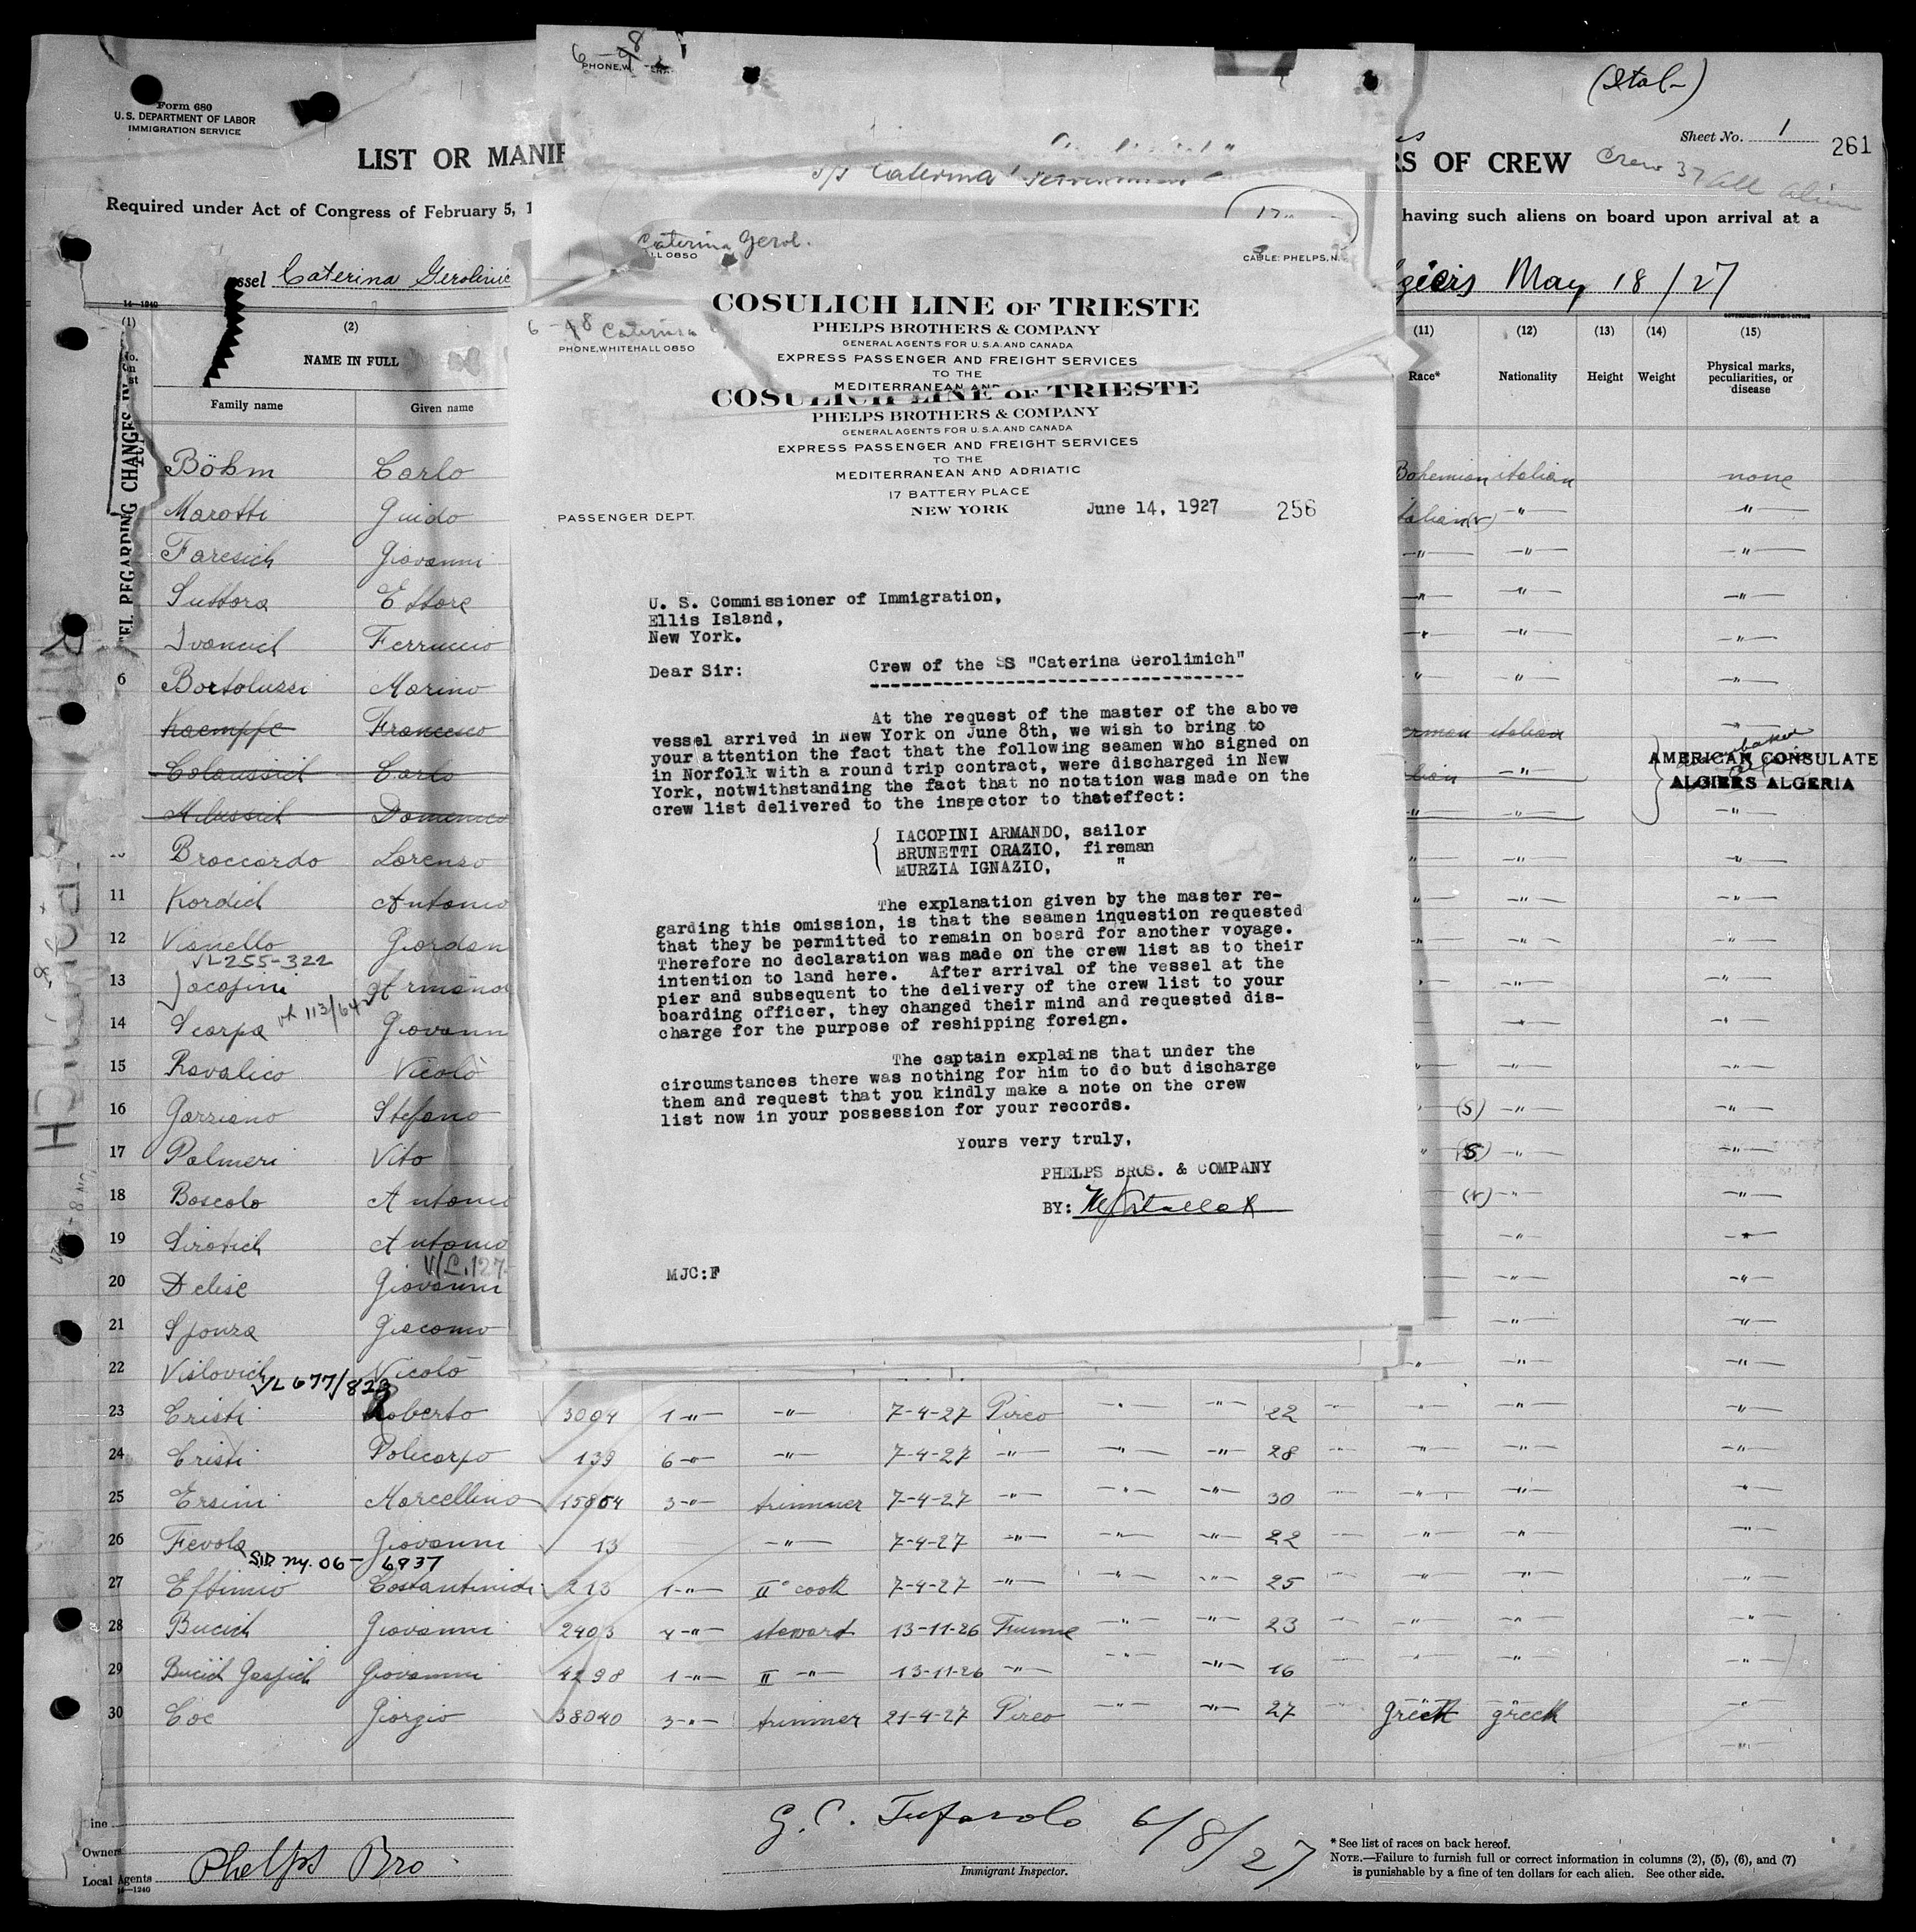 Form 680
U. S. DEPARTMENT OF LABOR
IMMIGRATION SERVICE
(Ital-)
Sheet No. 1
261
LIST OR MANIF
RS OF CREW
Crew 37 all alien
Required under Act of Congress of February 5, 1
having such aliens on board upon arrival at a
ssel Caterina Gerolimic
giers May 18/27
6-8
PHONE, W
S/S Caterina
Caterina Gerol.
LL 0850
CABLE: PHELPS, N.
COSULICH LINE OF TRIESTE
PHELPS BROTHERS & COMPANY
GENERAL AGENTS FOR U.S.A. AND CANADA
EXPRESS PASSENGER AND FREIGHT SERVICES
TO THE
MEDITERRANEAN AND
6-8 Caterina
PHONE, WHITEHALL 0850
COSULICH LINE OF TRIESTE
PHELPS BROTHERS & COMPANY
GENERAL AGENTS FOR U.S.A. AND CANADA
EXPRESS PASSENGER AND FREIGHT SERVICES
TO THE
MEDITERRANEAN AND ADRIATIC
17 BATTERY PLACE
NEW YORK
PASSENGER DEPT.
June 14, 1927
256
U. S. Commissioner of Immigration,
Ellis Island,
New York.
Dear Sir:
Crew of the SS "Caterina Gerolimich"
At the request of the master of the above
vessel arrived in New York on June 8th, we wish to bring to
your attention the fact that the following seamen who signed on
in Norfolk with a round trip contract, were discharged in New
York, notwithstanding the fact that no notation was made on the
crew list delivered to the inspector to thateffect:
IACOPINI ARMANDO, sailor
BRUNETTI ORAZIO, fireman
MURZIA IGNAZIO, "
The explanation given by the master re-
garding this omission, is that the seamen inquestion requested
that they be permitted to remain on board for another voyage.
Therefore no declaration was made on the crew list as to their
intention to land here. After arrival of the vessel at the
pier and subsequent to the delivery of the crew list to your
boarding officer, they changed their mind and requested dis-
charge for the purpose of reshipping foreign.
The captain explains that under the
circumstances there was nothing for him to do but discharge
them and request that you kindly make a note on the crew
list now in your possession for your records.
Yours very truly,
PHELPS BROS. & COMPANY
BY:
MJC:F
14-1240
(1) (2) (11) (12) (13) (14) (15)
NAME IN FULL
Family name Given name
Race* Nationality Height Weight Physical marks, peculiarities, or disease
REGARDING CHANGES IN
Böhm Carlo Bohemian italian none
Marotti Guido talian(N) -"- -"-
Faresich Giovanni -"- -"- -"-
Suttora Ettore -"- -"- -"-
Ivancich Ferruccio -"- -"- -"-
6 Bortolussi Marino " -"- -"-
Kaempfe Francesco erman italian -"-
Colaussich Carlo lian -"-
AMERICAN CONSULATE
ALGIERS ALGERIA
Milussich Domenico -"- -"- -"-
Broccardo Lorenzo -"- -"-
11 Kordich Antonio " -"- -"-
12 Visnello Giordan -"- -"-
VL 255-322
13 Jacopini Armand -"- -"-
VL 113/642
14 Scarpa Giovann -"- -"-
15 Ravalico Nicolò -"- -"-
16 Garziano Stefano (S) -"- -"-
17 Palmeri Vito (S) -"- -"-
18 Boscolo Antoni (N) -"- -"-
19 Sirotich Antonio -"- -"-
V/L.127-
20 Delise Giovanni -"- -"-
21 Sponza Giacomo -"- -"-
22 Vislovich Nicolò -"- -"-
VL 677/823
23 Cristi Roberto 3004 1-"- -"- 7-4-27 Pireo -"- -"- 22 -"- -"- -"- -"-
24 Cristi Policarpo 139 6-"- -"- 7-4-27 -"- -"- -"- 28 -"- -"- -"- -"-
25 Ersini Marcellino 15804 3-"- trimmer 7-4-27 -"- -"- -"- 30 -"- -"- -"- -"-
26 Fievola Giovanni 13 -"- 7-4-27 -"- -"- -"- 22 -"- -"- -"- -"-
SID ny. 06-6937
27 Eftimio Costantinidi 213 1-"- II° cook 7-4-27 -"- -"- -"- 25 -"- -"- -"- -"-
28 Bucich Giovanni 2403 4-"- steward 13-11-26 Fiume -"- -"- 23 -"- -"- -"- -"-
29 Bucich Gaspich Giovanni 4298 1-"- II -"- 13-11-26 -"- -"- -"- 16 -"- -"- -"- -"-
30 Coe Giorgio 38040 3-"- trimmer 21-4-27 Pireo -"- -"- 27 -"- greek greek -"-
-"-
ine
Owners
Local Agents Phelps Bro
14-1240
G. C. Tufarolo 6/8/27
Immigrant Inspector.
* See list of races on back hereof.
NOTE.—Failure to furnish full or correct information in columns (2), (5), (6), and (7)
is punishable by a fine of ten dollars for each alien. See other side.